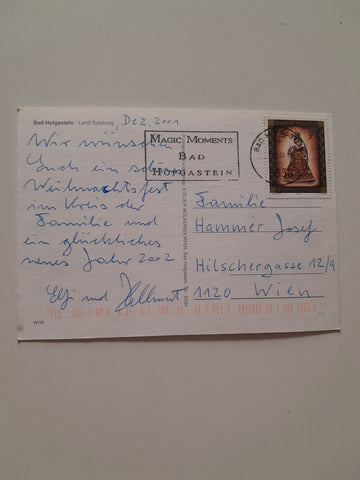 Bad Hofgastein · Land Salzburg
Dez. 2001
Wir wünschen
Euch ein schönes
Weihnachtsfest
im Kreis der
Familie und
ein glückliches
neues Jahr 2002
Elfi und Hellmut
MAGIC MOMENTS
BAD
HOFGASTEIN
Familie
Hammer Josef
Hilschergasse 12/9
1120 Wien